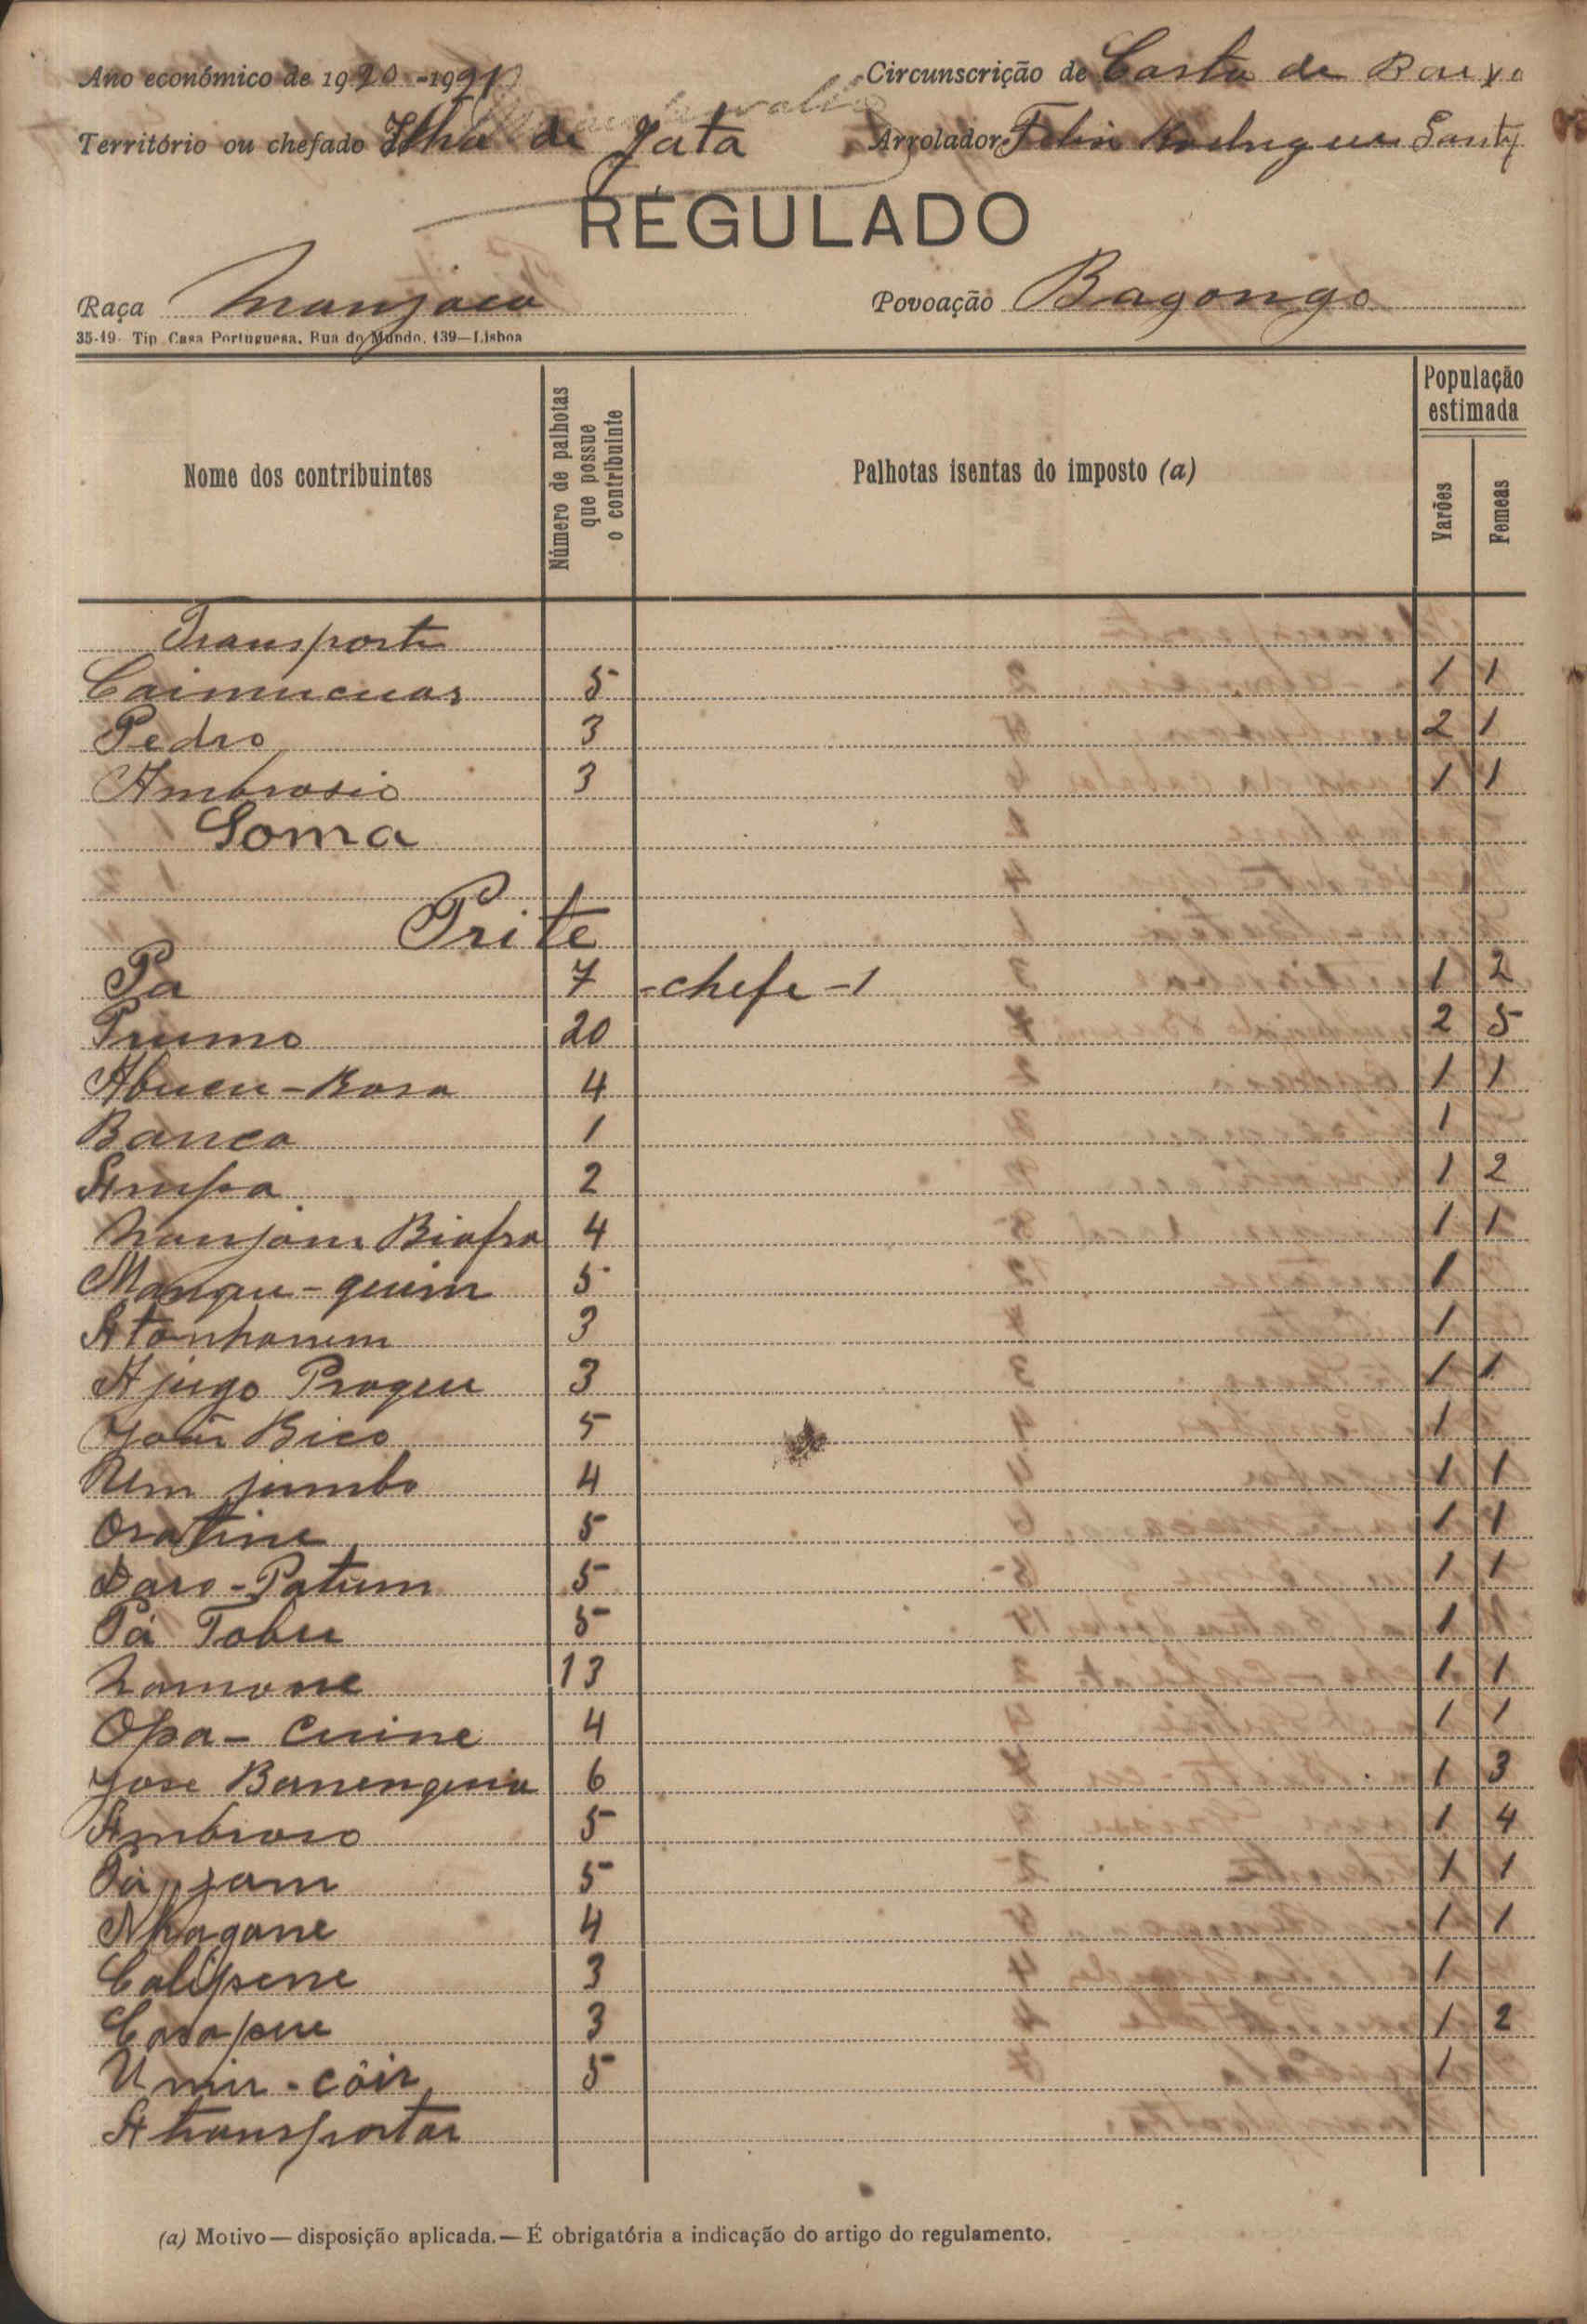 Ano económico de 1920-1921 Circunscrição de Costa de Baixo
Território ou chefado Ilha de Jata Arrolador Felix Rodrigues Santy
REGULADO
Raça Manjaca Povoação Bagongo
35-19- Tip. Casa Portuguesa, Rua do Mundo, 139—Lisboa
Nome dos contribuintes Número de palhotas que possue o contribuinte Palhotas isentas do imposto (a) População estimada Varões Femeas
Transporte
Caimucuas 5 1 1
Pedro 3 2 1
Ambrosio 3 1 1
Soma
Prite
Pa 7 -chefe -1 1 2
Prumo 20 2 5
Abucu-Rosa 4 1 1
Banca 1 1
Ampa 2 1 2
Nanjam Biafra 4 1 1
Mangu-quim 5 1
Atonhanum 3 1
Ajugo Proqui 3 1 1
João Bico 5 1
Num jumbo 4 1 1
Oratine 5 1 1
Daro-Patum 5 1 1
Pá Tobu 5 1
Namone 13 1 1
Opa-Cuine 4 1 1
Jose Banenquia 6 1 3
Ambroso 5 1 4
Pá jam 5 1 1
Nhagane 4 1 1
Calipene 3 1
Casapu 3 1 2
Umu-côir 5 1
A transportar
(a) Motivo—disposição aplicada.—É obrigatória a indicação do artigo do regulamento.